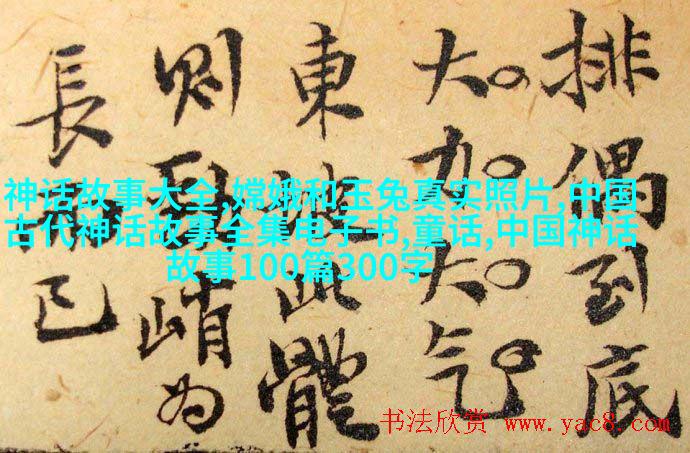 排偶到底
大加大气
東坡此體
則峭为
長已
神话故事大全,嫦娥和玉兔真实照片,中国
古代神话故事全集电子书,童话,中国神话
故事100篇300字
书法欣赏 www.yac8.com